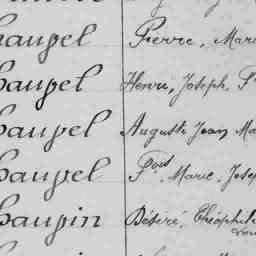 haupel Pierre, Marie
haupel Henri, Joseph, F
haupel Auguste Jean Ma
haupel Fçois, Marie, Josep
haupin Désiré, Théophile